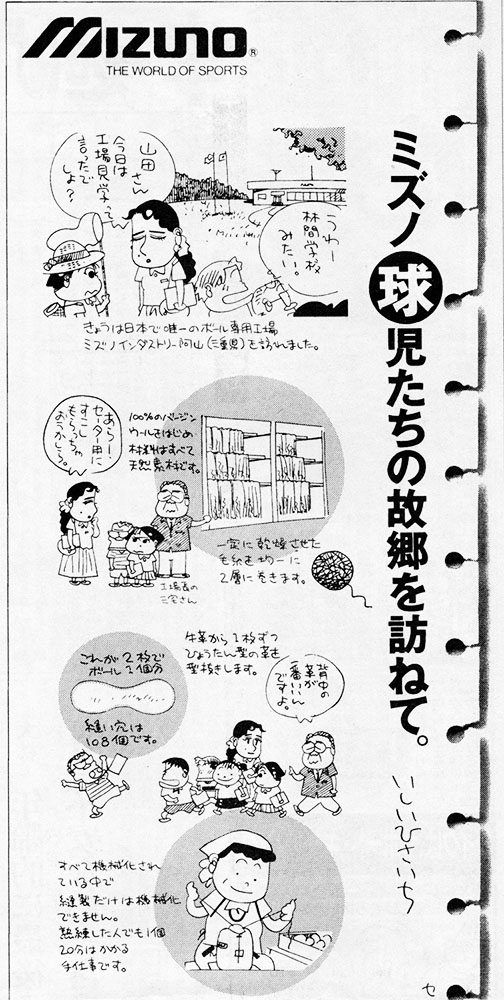 MIZUNO®
THE WORLD OF SPORTS
ミズノ球児たちの故郷を訪ねて。
いしいひさいち
うわー
林間学校
みたい。
山田さん
今日は
工場見学って
言ったで
しょ?
きょうは日本で唯一のボール専用工場
ミズノインダストリー阿山(三重県)を訪れました。
あらー
セーター用に
すこし
もらっちゃ
おうかしら。
100%のバージン
ウールをはじめ
材料はすべて
天然素材です。
工場長の
三宅さん
一定に乾燥させた
毛糸を均一に
2層にまきます。
牛革から1枚ずつ
ひょうたん型の革を
型抜きします。
これが2枚で
ボール1個分
縫い穴は
108個です。
背中の
革が
一番いいん
ですよ。
すべて機械化され
ている中で
縫製だけは機械化
できません。
熟練した人でも1個
20分はかかる
手仕事です。